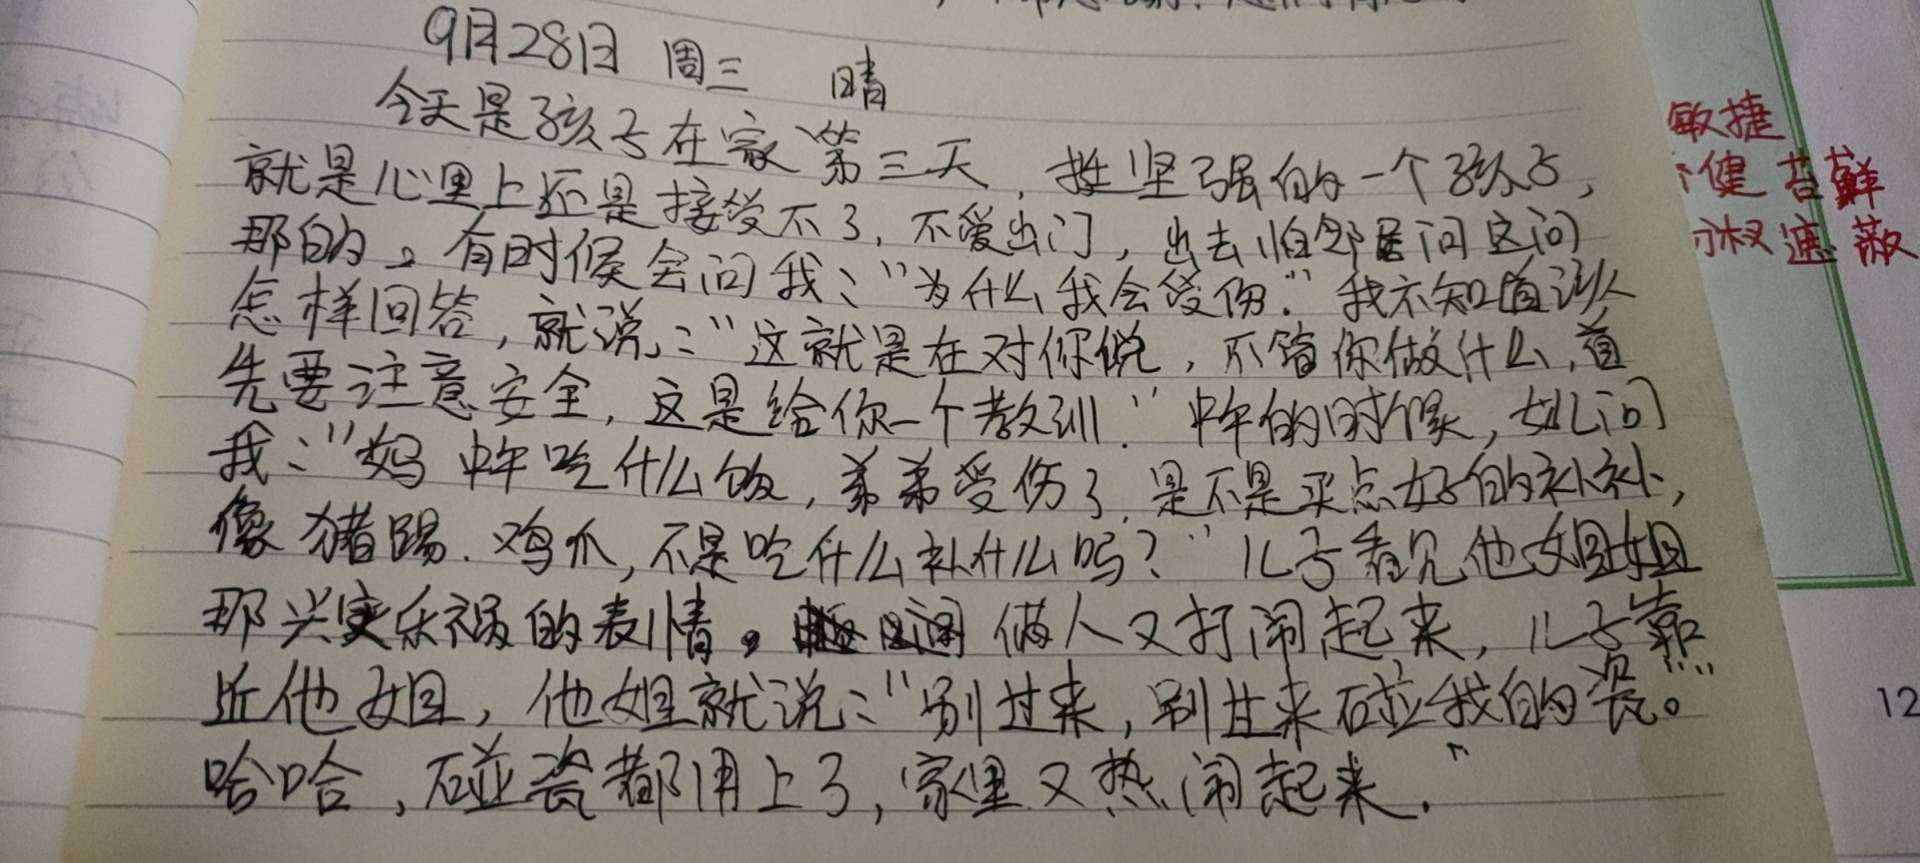 9月28日 周三 晴
今天是孩子在家第三天，挺坚强的一个孩子，
就是心里上还是接受不了，不爱出门，出去怕邻居问这问
那的。有时候会问我："为什么我会受伤."我不知道该
怎样回答，就说："这就是在对你说，不管你做什么，首
先要注意安全，这是给你一个教训."中午的时候，女儿问
我："妈中午吃什么饭，弟弟受伤了，是不是买点好的补补，
像猪蹄.鸡爪，不是吃什么补什么吗？"儿子看见他姐姐
那兴灾乐祸的表情。俩人又打闹起来，儿子靠
近他姐，他姐就说："别过来，别过来碰我的瓷。"
哈哈，碰瓷都用上了，家里又热闹起来.
敏捷
健 苔藓
叔 速 蔽
12